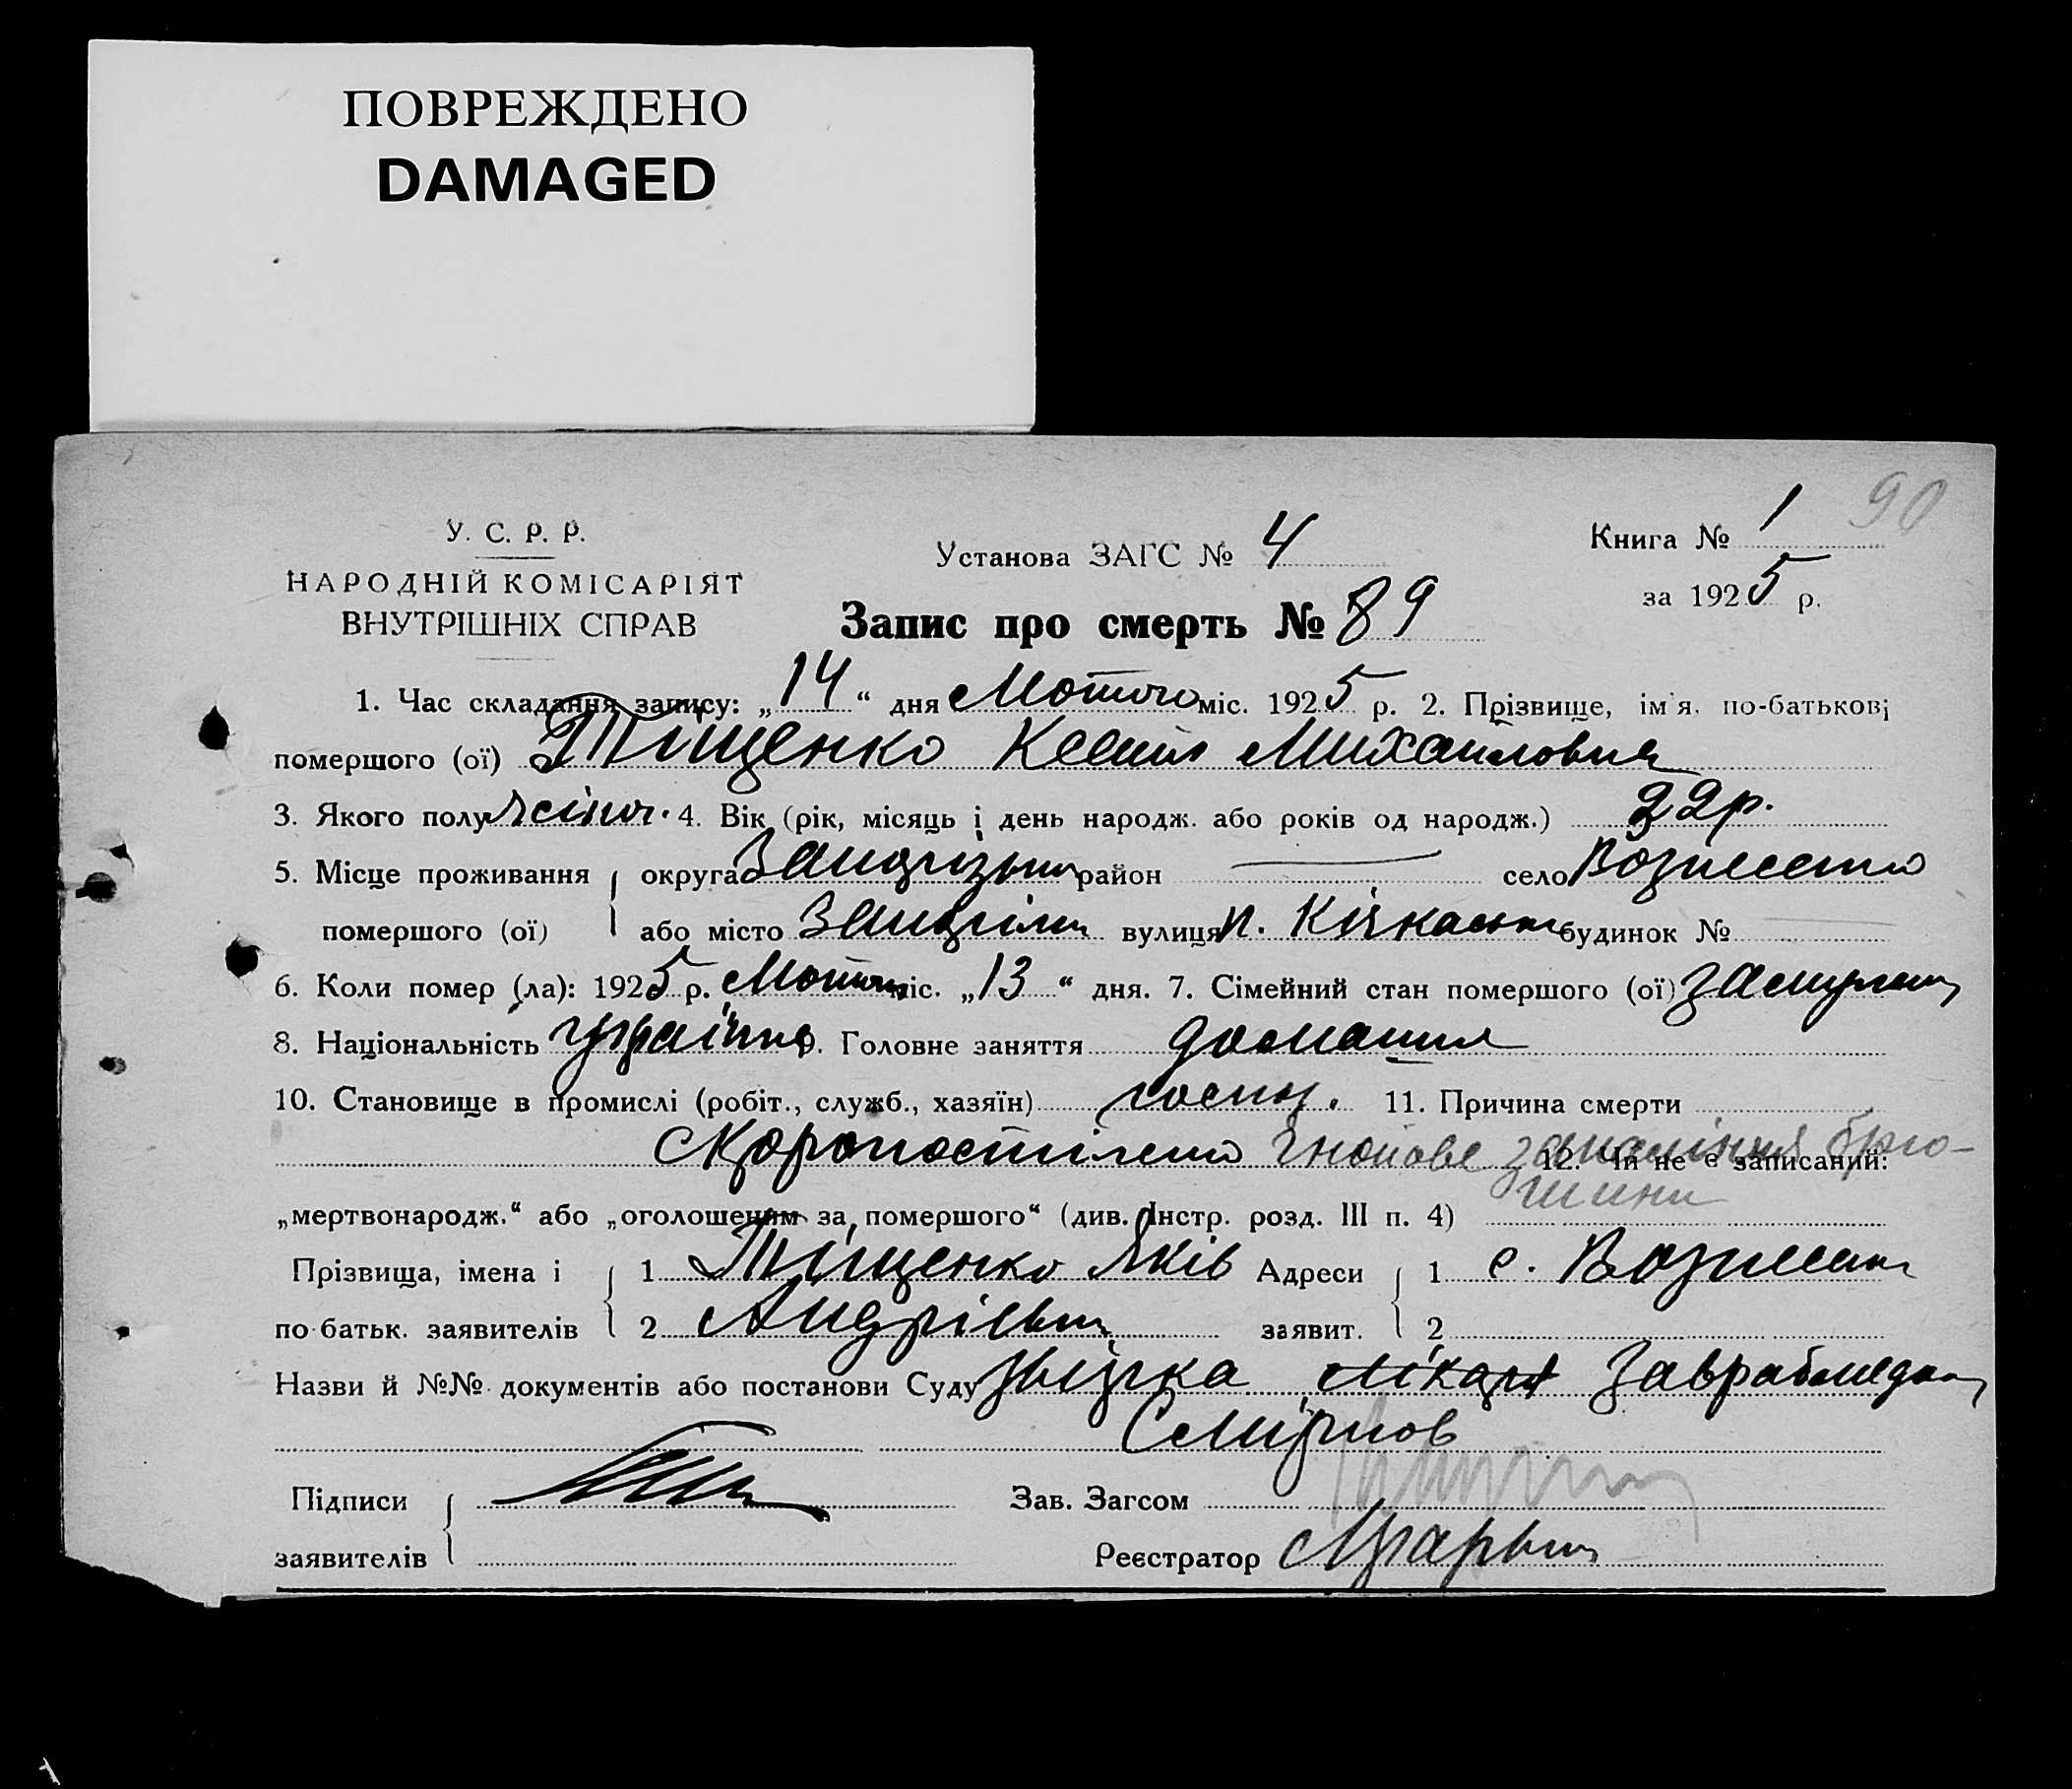 ПОВРЕЖДЕНО
DAMAGED
90
У. С. Р. Р.
НАРОДНІЙ КОМІСАРІЯТ
ВНУТРІШНІХ СПРАВ
Установа ЗАГС № 4
Книга № 1
за 1925 р.
Запис про смерть № 89
1. Час складання запису: „14“ дня Лютого міс. 1925 р. 2. Прізвище, ім'я, по-батькові
помершого (ої) Тіщенко Ксенія Михайловна
3. Якого полу жіноч. 4. Вік (рік, місяць і день народж. або років од народж.) 22 р.
5. Місце проживання округа район село
помершого (ої) або місто вулиця п. будинок №
6. Коли помер (ла): 1925 р. Лютого міс. „13“ дня. 7. Сімейний стан помершого (ої)
8. Національність 9. Головне заняття домашня
10. Становище в промислі (робіт., служб., хазяїн) госпо. 11. Причина смерти
Скоропостіжно гнойове запаління брю-
шини
12. Чи не є записаний:
„мертвонародж.“ або „оголошеним за помершого“ (див. Інстр. розд. III п. 4)
Прізвища, імена і 1 Тіщенко Яків Адреси 1 с.
по-батьк. заявителів 2 Андрієвич заявит. 2
Назви й №№ документів або постанови Суду лікаря
Смірнов
Підписи Зав. Загсом
заявителів Реєстратор